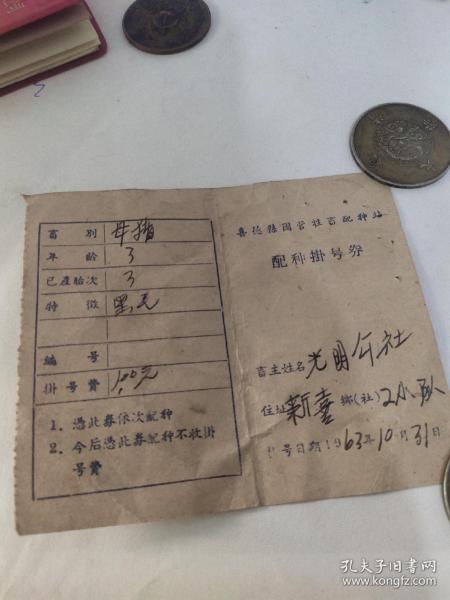 畜别 母猪
年龄 3
已產胎次 3
特徵 黑毛
编号
掛号費 1.00元
1. 憑此券依次配种
2. 今后憑此券配种不收掛
号費
喜德縣国营牲畜配种站
配种掛号券
畜主姓名 光明公社
住址 新喜 鄉(社) 2小队
号日期 1963年10月31日
孔夫子旧书网
www.kongfz.com